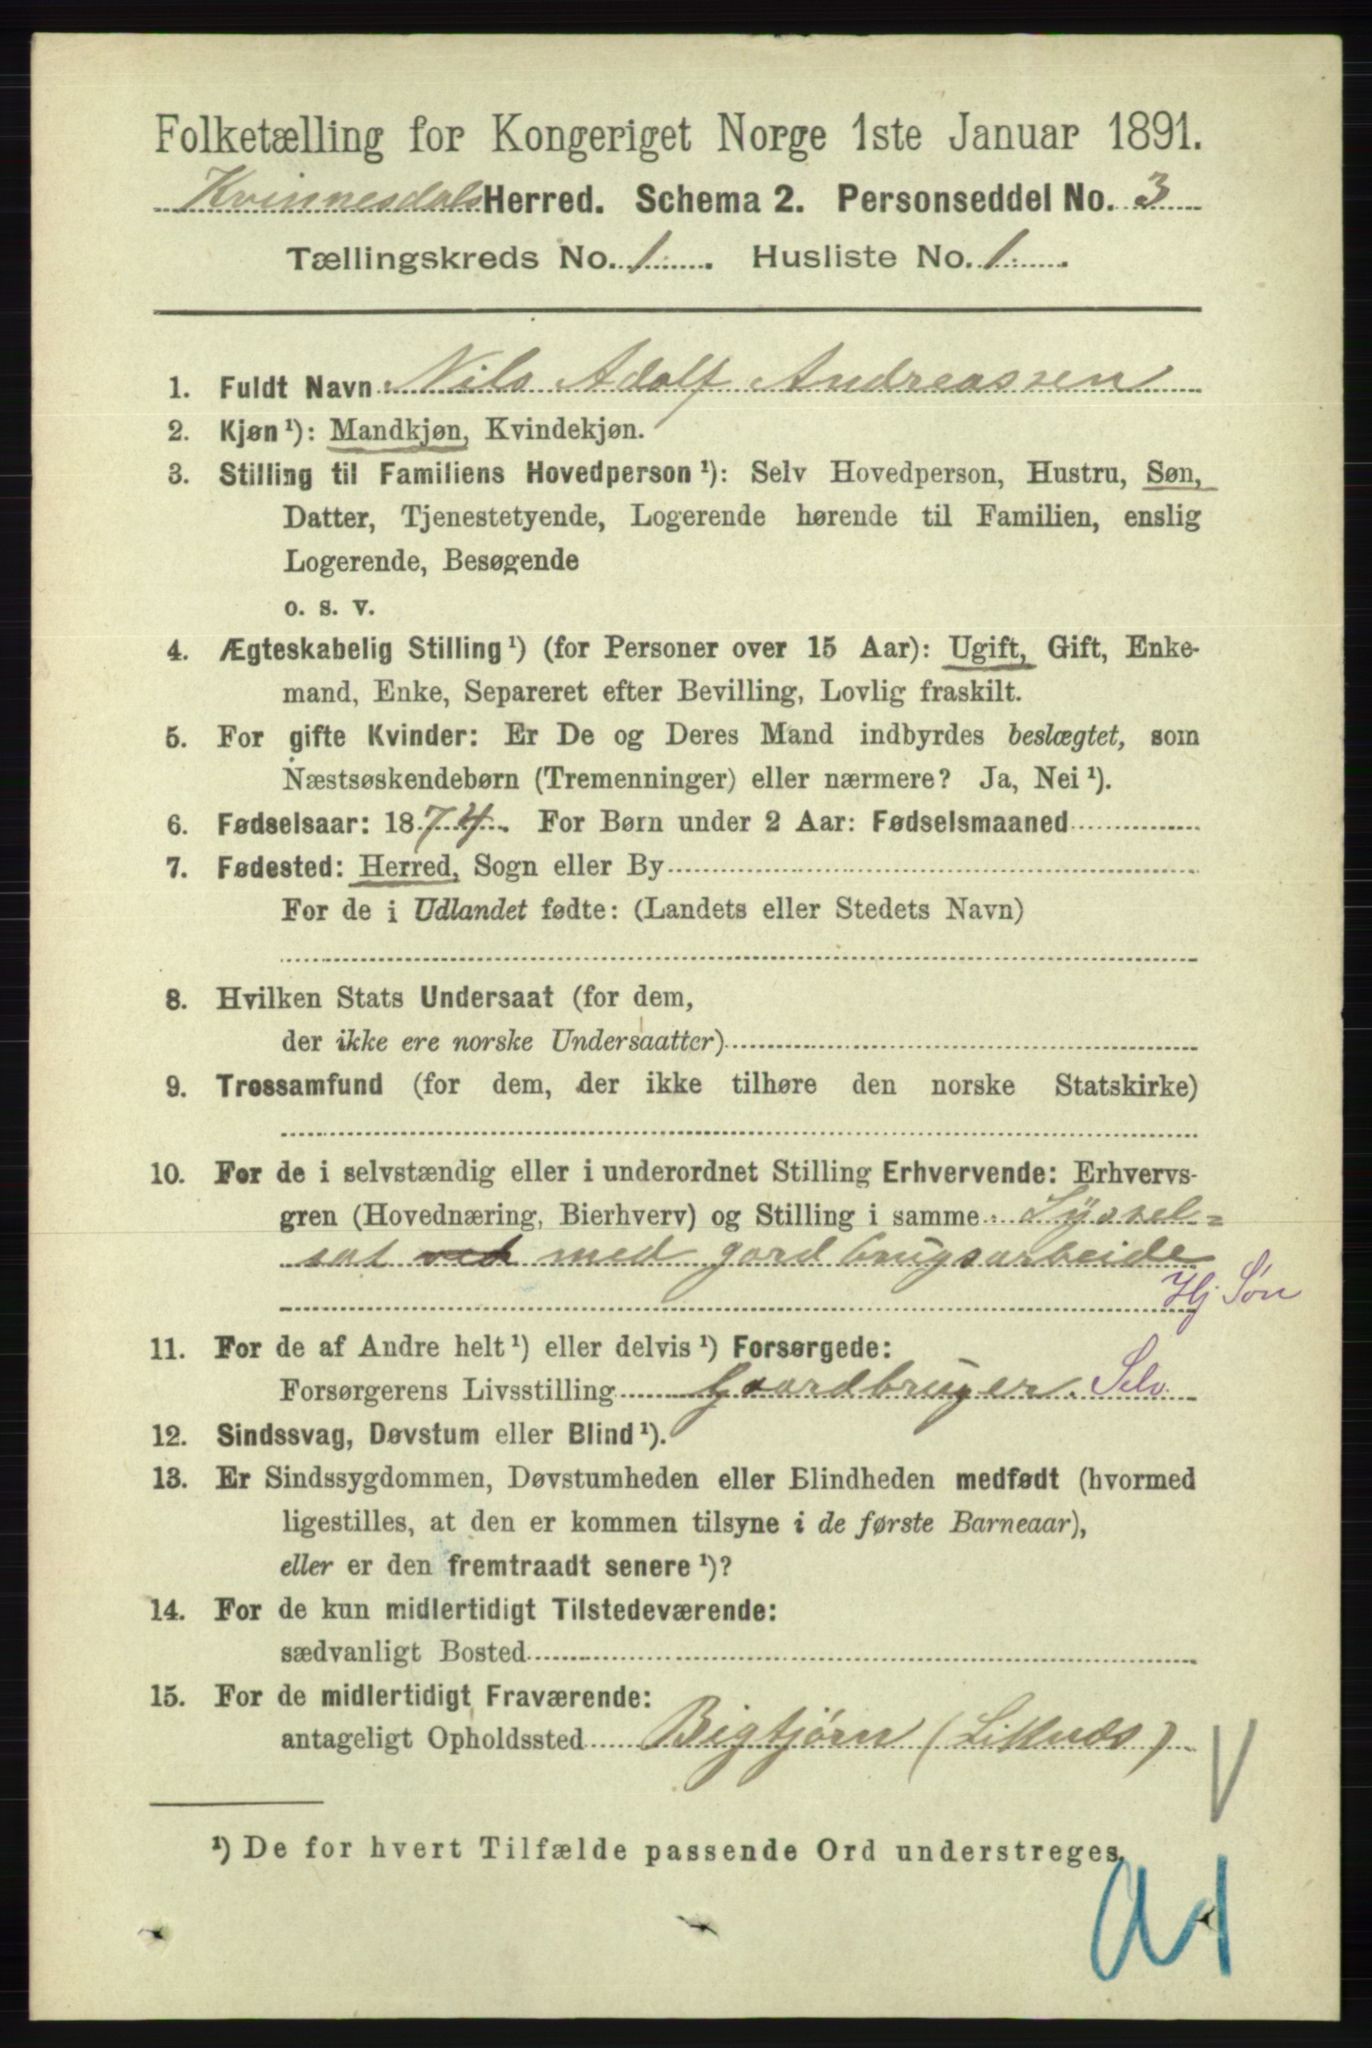 Folketælling for Kongeriget Norge 1ste Januar 1891.
Kvinnesdals Herred. Schema 2. Personseddel No. 3
Tællingskreds No. 1. Husliste No. 1.
1. Fuldt Navn Nils Adolf Andreassen
2. Kjøn ¹): Mandkjøn, Kvindekjøn.
3. Stilling til Familiens Hovedperson ¹): Selv Hovedperson, Hustru, Søn,
Datter, Tjenestetyende, Logerende hørende til Familien, enslig
Logerende, Besøgende
o. s. v.
4. Ægteskabelig Stilling ¹) (for Personer over 15 Aar): Ugift, Gift, Enke-
mand, Enke, Separeret efter Bevilling, Lovlig fraskilt.
5. For gifte Kvinder: Er De og Deres Mand indbyrdes beslægtet, som
Næstsøskendebørn (Tremenninger) eller nærmere? Ja, Nei ¹).
6. Fødselsaar: 1874. For Børn under 2 Aar: Fødselsmaaned
7. Fødested: Herred, Sogn eller By
For de i Udlandet fødte: (Landets eller Stedets Navn)
8. Hvilken Stats Undersaat (for dem,
der ikke ere norske Undersaatter)
9. Trossamfund (for dem, der ikke tilhøre den norske Statskirke)
10. For de i selvstændig eller i underordnet Stilling Erhvervende: Erhvervs-
gren (Hovednæring, Bierhverv) og Stilling i samme Sÿssel=
sat ved med gardbrugsarbeide
Hj Søn
11. For de af Andre helt ¹) eller delvis ¹) Forsørgede:
Forsørgerens Livsstilling Gaardbruger. Selv
12. Sindssvag, Døvstum eller Blind ¹).
13. Er Sindssygdommen, Døvstumheden eller Blindheden medfødt (hvormed
ligestilles, at den er kommen tilsyne i de første Barneaar),
eller er den fremtraadt senere ¹)?
14. For de kun midlertidigt Tilstedeværende:
sædvanligt Bosted
15. For de midlertidigt Fraværende:
antageligt Opholdssted Bigtjørn
¹) De for hvert Tilfælde passende Ord understreges.